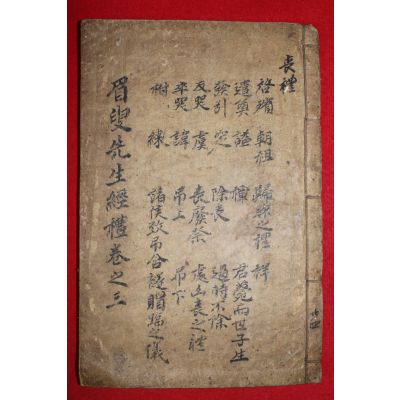 喪禮
啓殯 朝祖 歸葬之禮 祥
遣奠 謚 禫 君薨而世子生
發引 窆 除喪 過時不除
反哭 虞 喪廢祭 處凶喪之禮
卒哭 諱 吊上 吊下
祔 練 諸侯致吊含襚賵臨之儀
眉叟先生經禮卷之三